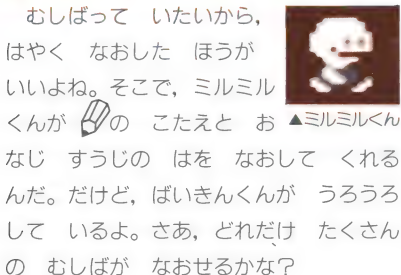 むしばって いたいから,
はやく なおした ほうが
いいよね。そこで, ミルミル
くんが の こたえと お
▲ミルミルくん
なじ すうじの はを なおして くれる
んだ。だけど, ばいきんくんが うろうろ
して いるよ。さあ, どれだけ たくさん
の むしばが なおせるかな?